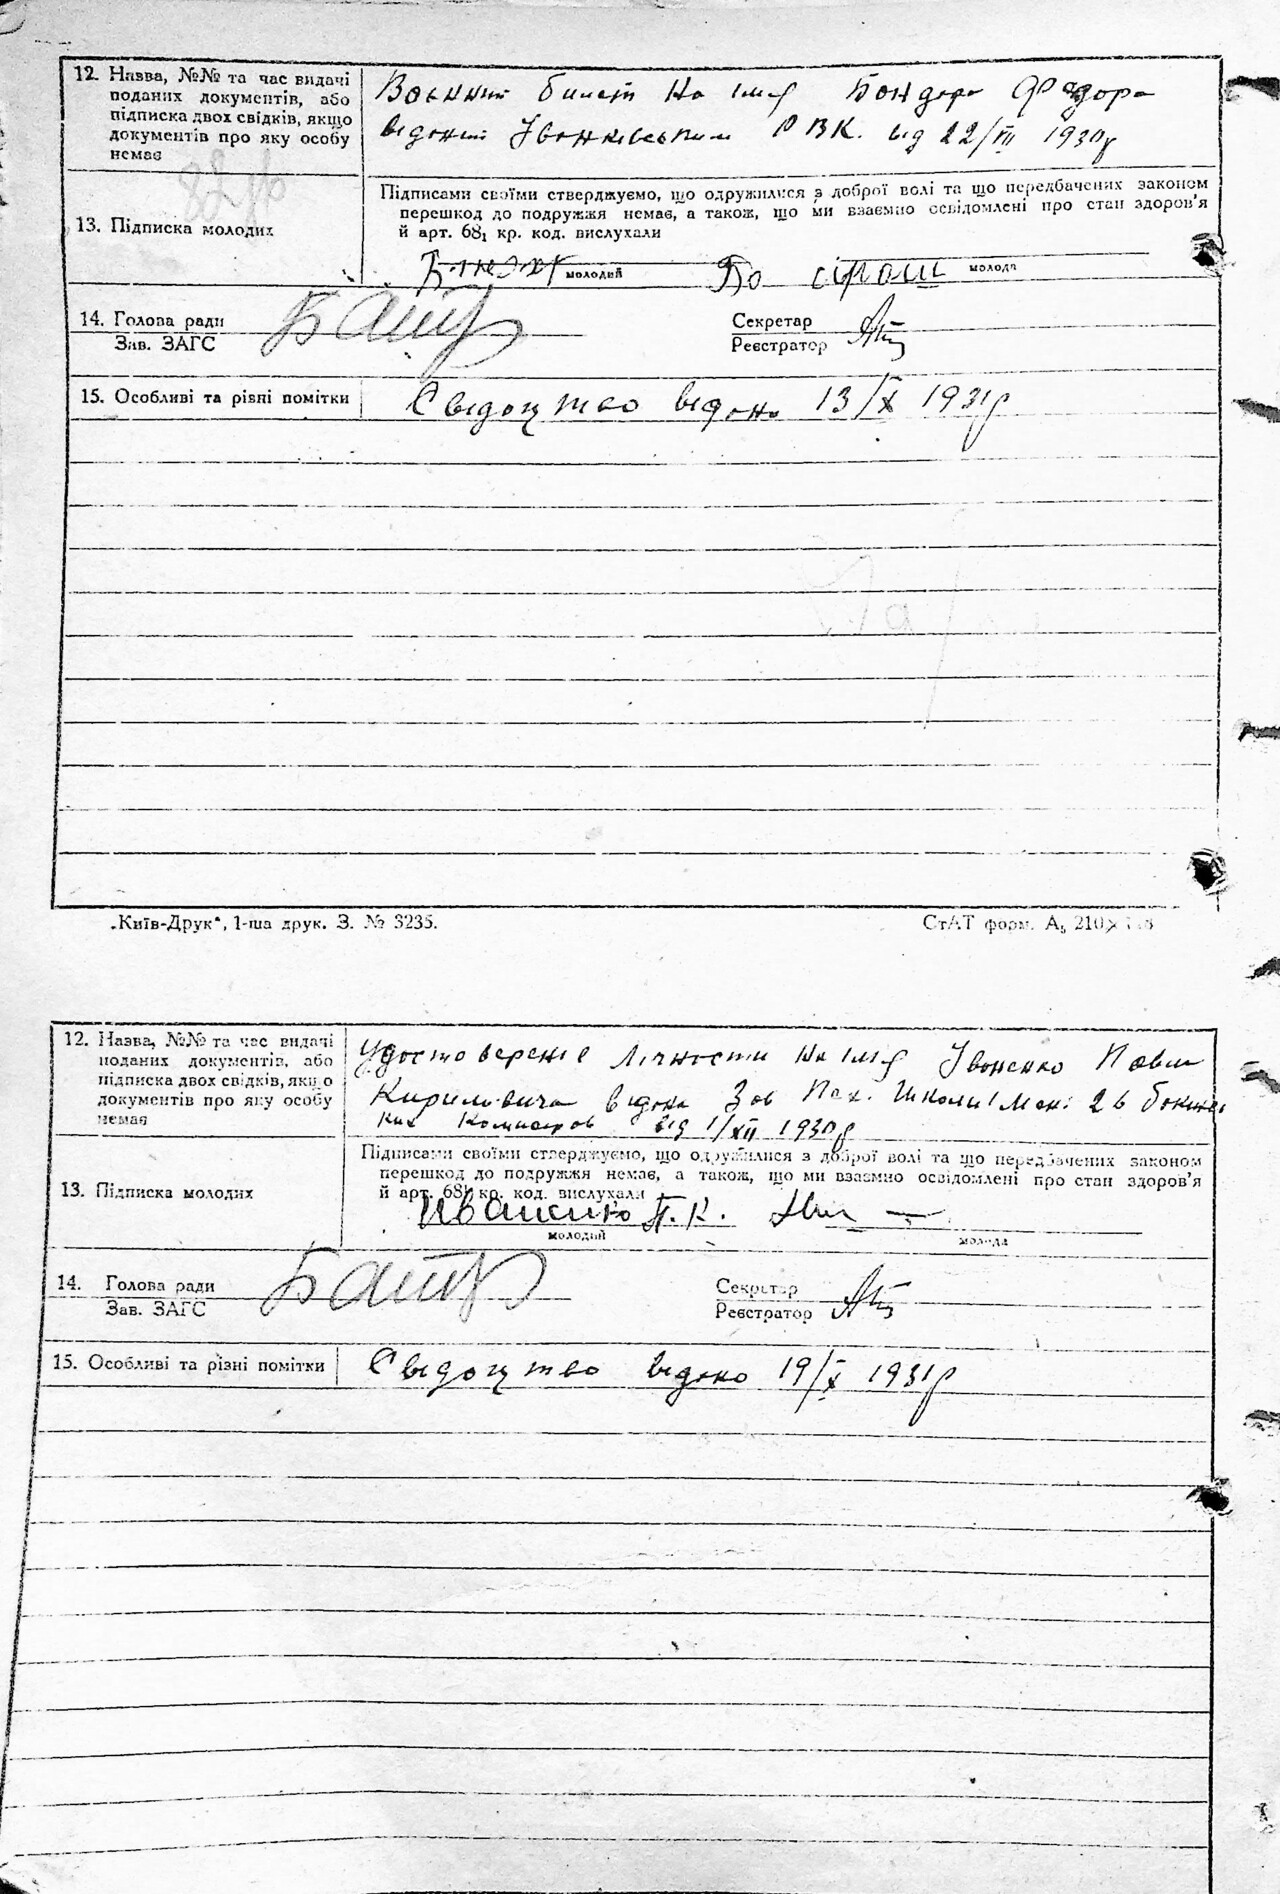 12. Назва, №№ та час видачі
поданих документів, або
підписка двох свідків, якщо
документів про яку особу
немає
Воєнний билет на імя Бондаря Федора
відоний Івонківським РВК. від 22/VII 1930р
13. Підписка молодих
Підписами своїми стверджуємо, що одружилися з доброї волі та що передбачених законом
перешкод до подружжя немає, а також, що ми взаємно освідомлені про стан здоров'я
й арт. 68₁ кр. код. вислухали
молодий
молода
14. Голова ради
Зав. ЗАГС
Секретар
Реєстратор
15. Особливі та рівні помітки
Свідоцтво відоно 13/X 1931р
„Київ-Друк“, 1-ша друк. З. № 3235.
СтАТ форм. А₅ 210×148
12. Назва, №№ та час видачі
поданих документів, або
підписка двох свідків, якщо
документів про яку особу
немає
Удостовереніе лічности на імя Івоненко Павла
Кириловича відоно Зов Пех. Школи Імені
від 1/XII 1930р
13. Підписка молодих
Підписами своїми стверджуємо, що одружилися з доброї волі та що передбачених законом
перешкод до подружжя немає, а також, що ми взаємно освідомлені про стан здоров'я
й арт. 68₁ кр. код. вислухали
П. К.
молодий
молода
14. Голова ради
Зав. ЗАГС
Секретар
Реєстратор
15. Особливі та різні помітки
Свідоцтво відоно 19/X 1931р